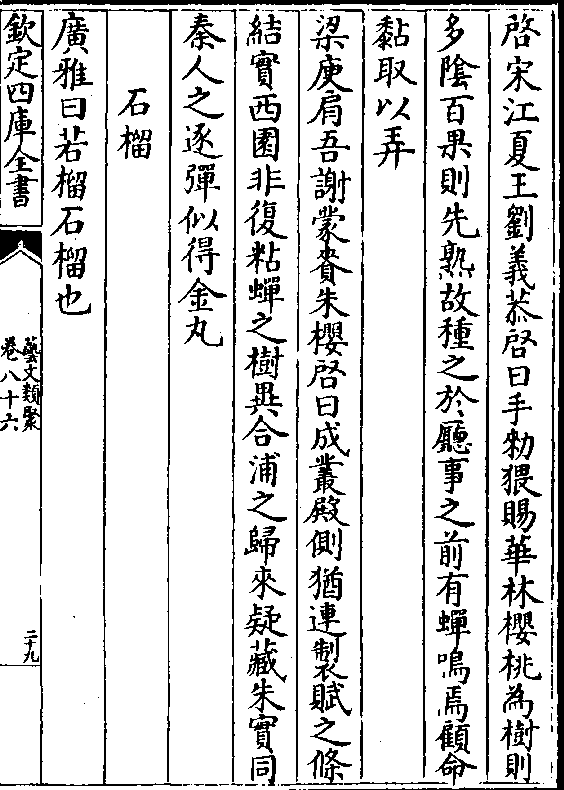 啓宋江夏王劉義恭啓曰手勑猥賜華林櫻桃為樹則
多陰百果則先熟故種之於廳事之前有蟬鳴焉顧命
黏取以弄
梁庾肩吾謝蒙賚朱櫻啓曰成叢殿側猶連製賦之條
結實西園非復粘蟬之樹異合浦之歸來疑藏朱實同
秦人之逐彈似得金丸
石榴
廣雅曰若榴石榴也
欽定四庫全書
藝文類聚
卷八十六
二十九